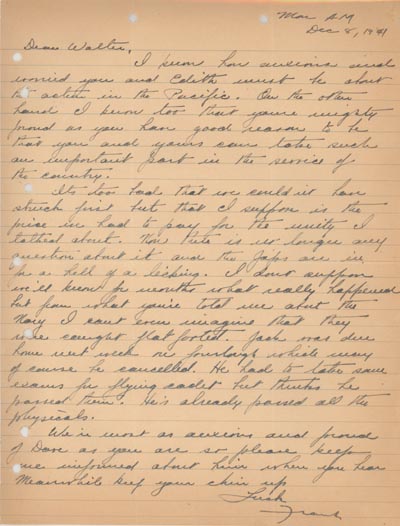 Mon A.M
Dec 8, 1941
Dear Walter,
I know how anxious and
worried you and Edith must be about
the action in the Pacific. On the other
hand I know too that you're mighty
proud as you have good reason to be
that you and yours can take such
an important part in the service of
the country.
It's too bad that we couldn't have
struck first but that I suppose is the
price we had to pay for the unity I
talked about. Now there is no longer any
question about it and the Japs are in
for a hell of a licking. I don't suppose
we'll know for months what really happened
but from what you've told me about the
Navy I can't even imagine that they
were caught flat footed. Jack was due
home next week on furlough which may
of course be cancelled. He had to take some
exams for flying cadet but thinks he
passed them. He's already passed all the
physicals.
We're most as anxious and proud
of Dave as you are so please keep
me informed about him when you hear
Meanwhile keep your chin up
Frank